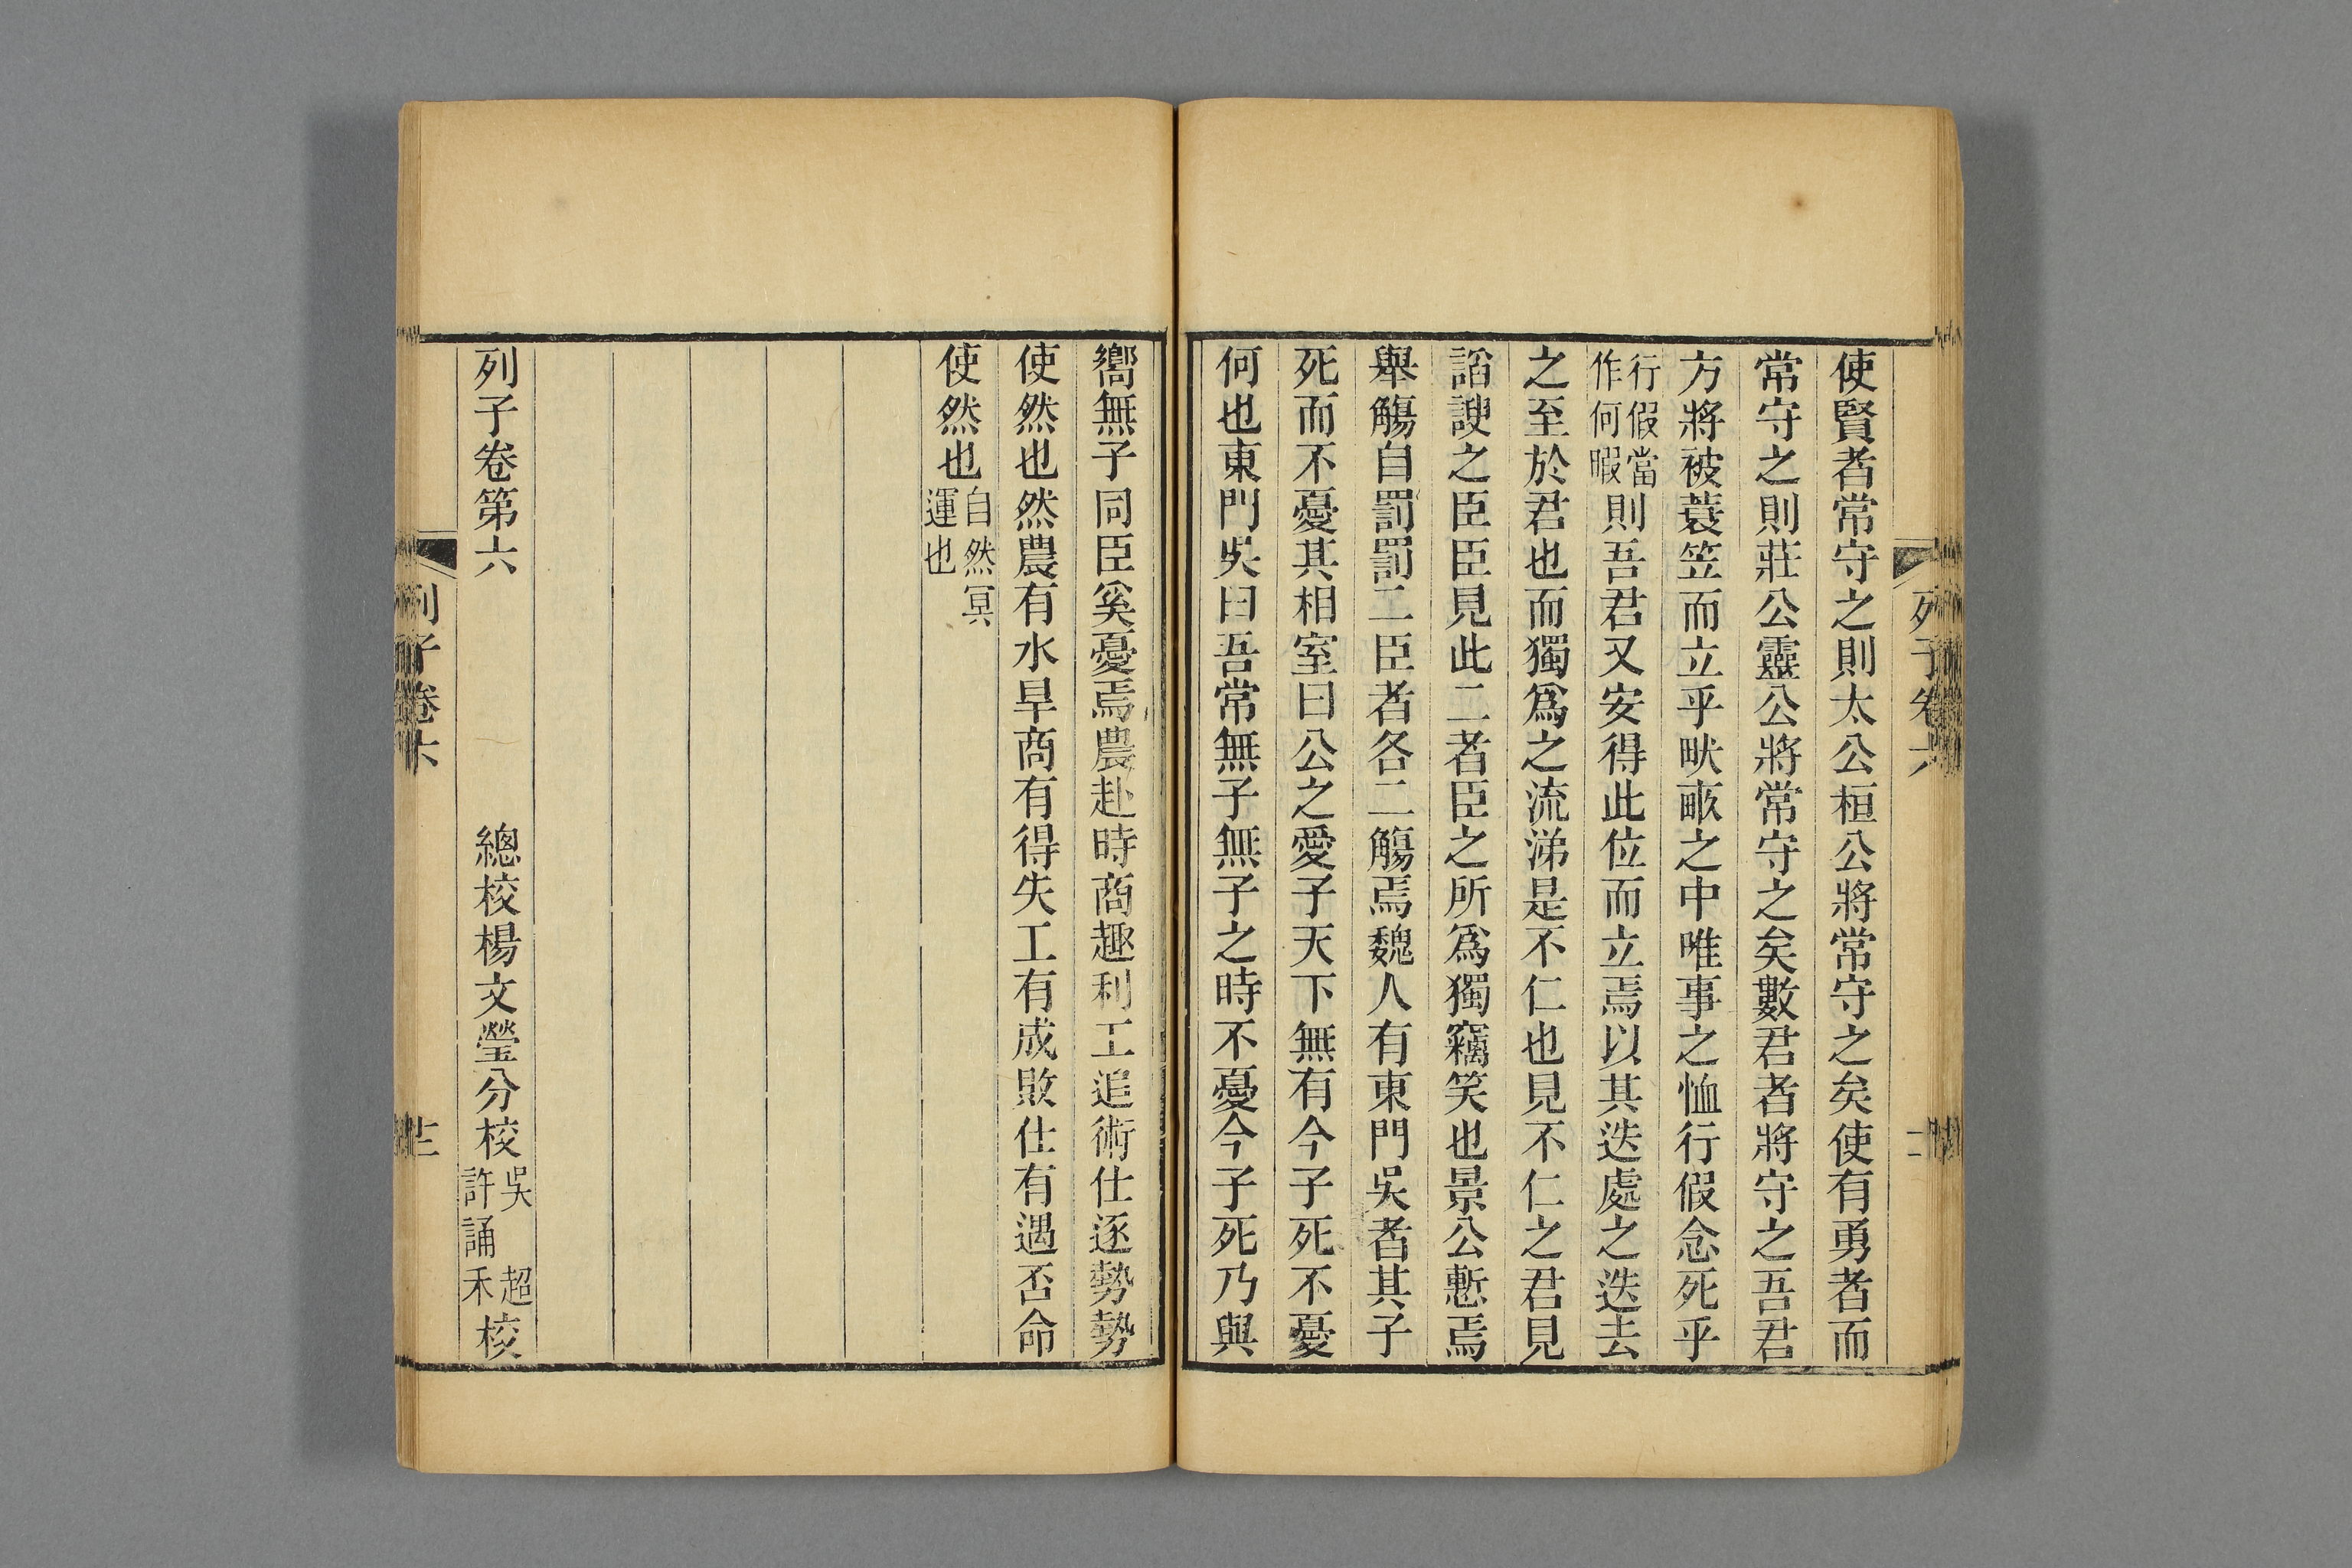 使賢者常守之則太公桓公將常守之矣使有勇者而
常守之則莊公靈公將常守之矣數君者將守之吾君
方將被蓑笠而立乎畎畝之中唯事之恤行假念死乎
行假當作何暇則吾君又安得此位而立焉以其迭處之迭去
之至於君也而獨爲之流涕是不仁也見不仁之君見
諂諛之臣臣見此二者臣之所爲獨竊笑也景公慙焉
舉觴自罰罰二臣者各二觴焉魏人有東門吳者其子
死而不憂其相室曰公之愛子天下無有今子死不憂
何也東門吳曰吾常無子無子之時不憂今子死乃與
嚮無子同臣奚憂焉農赴時商趣利工追術仕逐勢勢
使然也然農有水旱商有得失工有成敗仕有遇否命
使然也自然冥運也
列子卷第六 總校楊文瑩分校吳超許誦禾校
列子卷六